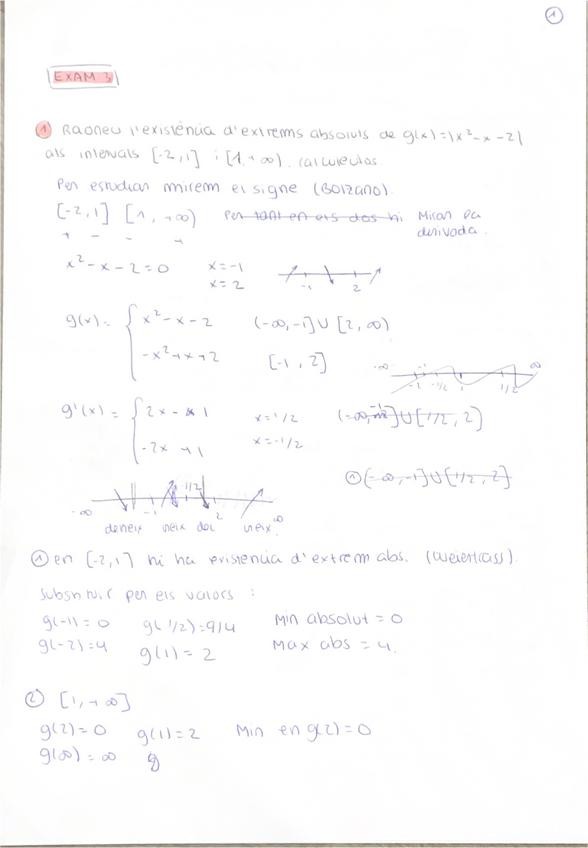 1
EXAM 3
1 Raoneu l'existència d'extrems absoluts de g(x)=|x²-x-2|
als intervals [-2,1] i [1,+∞). Calculeulos
Per estudiar mirem el signe (Bolzano).
[-2,1] [1,+∞) Per tant en els dos hi Mirar la
+ - - + derivada.
x²-x-2=0 x=-1
x=2
-1 2
g(x)= { x²-x-2 (-∞,-1]∪[2,∞)
-x²+x+2 [-1,2]
-∞ -2 -1 -1/2 1 1/2 ∞
g'(x)= { 2x-1 x=1/2
-2x+1 x=-1/2
∪[1/2,2)
1 (-∞,-1]∪[1/2,2]
-∞ -1 1/2 2 ∞
decreix creix dec creix
1 en [-2,1] hi ha existencia d'extrem abs. (Weiertrass).
Substituir per els valors :
g(-1)=0 g(1/2)=9/4 Min absolut = 0
g(-2)=4 g(1)=2 Max abs = 4.
2 [1,+∞]
g(2)=0 g(1)=2 Min en g(2)=0
g(∞)=∞ g